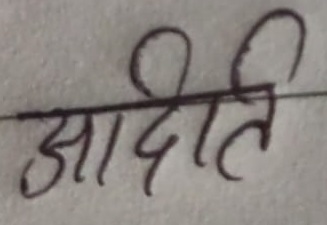 आदीति